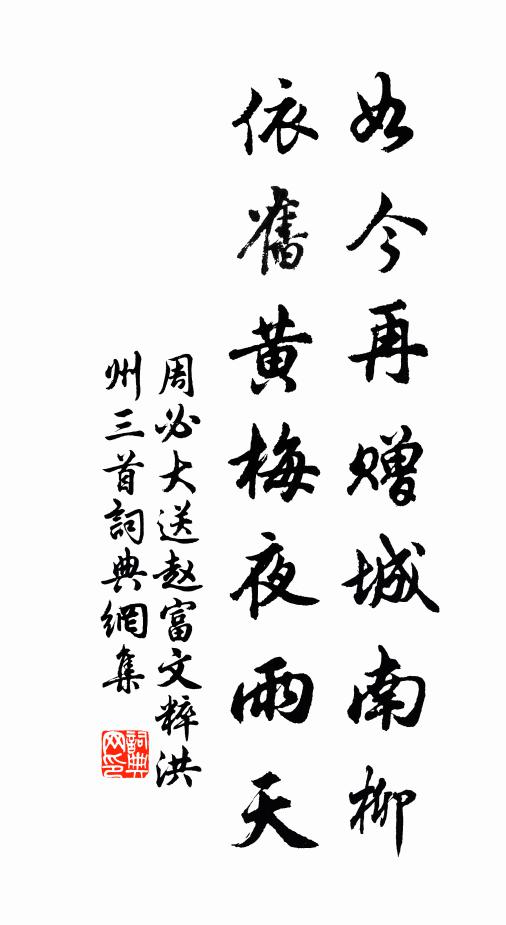 如今再赠城南柳
依舊黄梅夜雨天
周必大送赵富文粹洪
州三首詞典網集
詞典网印